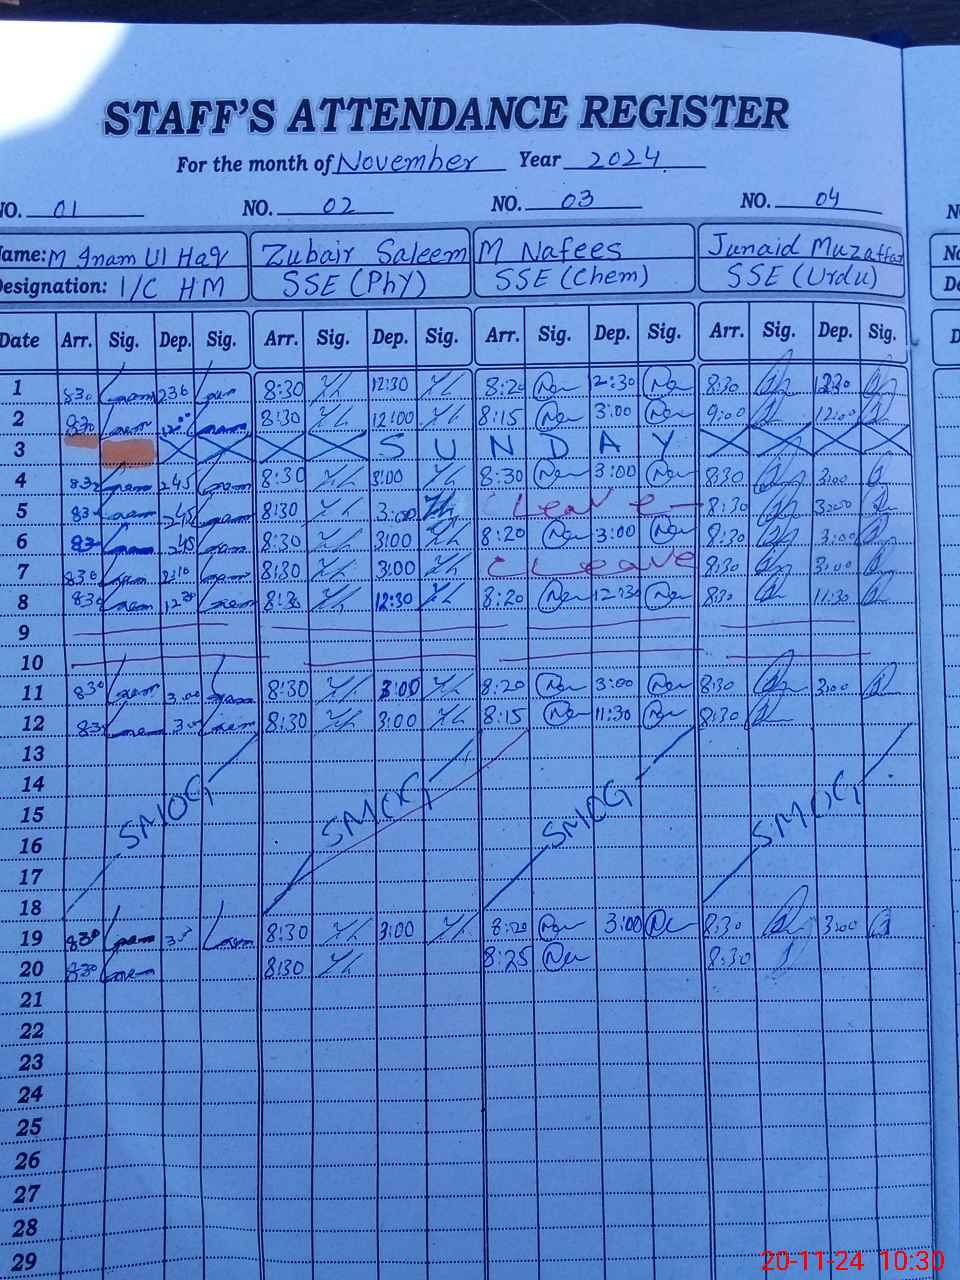 STAFF'S ATTENDANCE REGISTER
For the month of November Year 2024
NO. 01 NO. 02 NO. 03 NO. 04
Name: M Inam Ul Haq Zubair Saleem M Nafees Junaid Muzaffar
Designation: I/C HM SSE (PhY) SSE (Chem) SSE (Urdu)
Date Arr. Sig. Dep. Sig. Arr. Sig. Dep. Sig. Arr. Sig. Dep. Sig. Arr. Sig. Dep. Sig.
1 830 1230 8:30 12:30 8:20 12:30 8:30 12:30
2 830 8:30 12:00 8:15 3:00 9:00 12:00
3 S U N D A Y
4 830 245 8:30 3:00 8:30 3:00 8:30 3:00
5 830 245 8:30 3:00 C Leave 8:30 3:00
6 830 245 8:30 3:00 8:20 3:00 8:30 3:00
7 830 8:30 3:00 C Leave 8:30 3:00
8 830 1230 8:30 12:30 8:20 12:30 8:30 11:30
9
10
11 830 3:00 8:30 3:00 8:20 3:00 8:30 3:00
12 830 8:30 3:00 8:15 11:30 8:30
13
14
15 SMOG SMOG SMOG SMOG
16
17
18
19 830 8:30 3:00 8:20 3:00 8:30 3:00
20 830 8:30 8:25 8:30
21
22
23
24
25
26
27
28
29
20-11-24 10:30